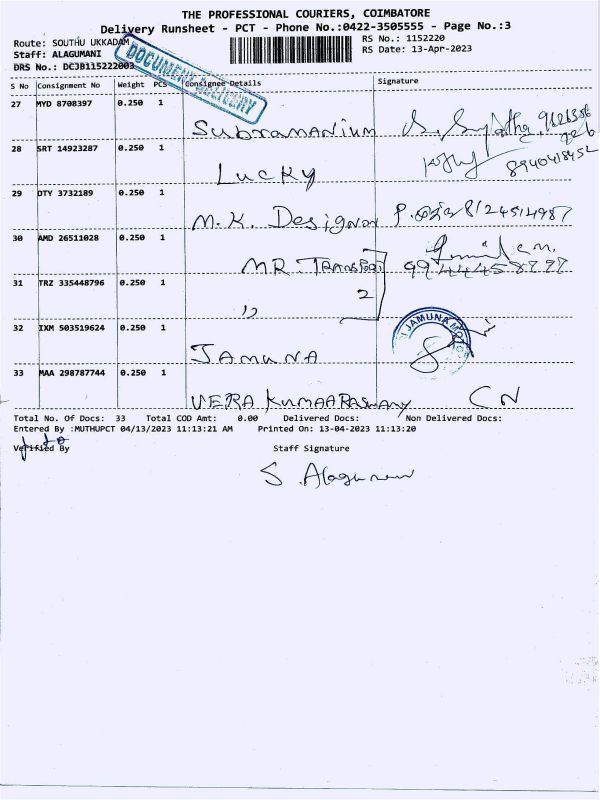 THE PROFESSIONAL COURIERS, COIMBATORE
Delivery Runsheet - PCT - Phone No.:0422-3505555 - Page No.:3
Route: SOUTHU UKKADAM
RS No.: 1152220
Staff: ALAGUMANI
RS Date: 13-Apr-2023
DRS No.: DCJB115222003
DOCUMENT DELIVERY
S No Consignment No Weight PCS Consignee Details Signature
27 MYD 8708397 0.250 1
Subramanium
28 SRT 14923287 0.250 1
Lucky 8940418452
29 OTY 3732189 0.250 1
M.K. Designor P. 8124514987
30 AMD 26511028 0.250 1
MR. TRANSPORT
31 TRZ 335448796 0.250 1
2
,,
32 IXM 503519624 0.250 1
JAMUNA
JAMUNA
33 MAA 298787744 0.250 1
VERA KUMAARASWAMY CN
Total No. Of Docs: 33 Total COD Amt: 0.00 Delivered Docs: Non Delivered Docs:
Entered By :MUTHUPCT 04/13/2023 11:13:21 AM Printed On: 13-04-2023 11:13:20
Verified By Staff Signature
S. Alagumani